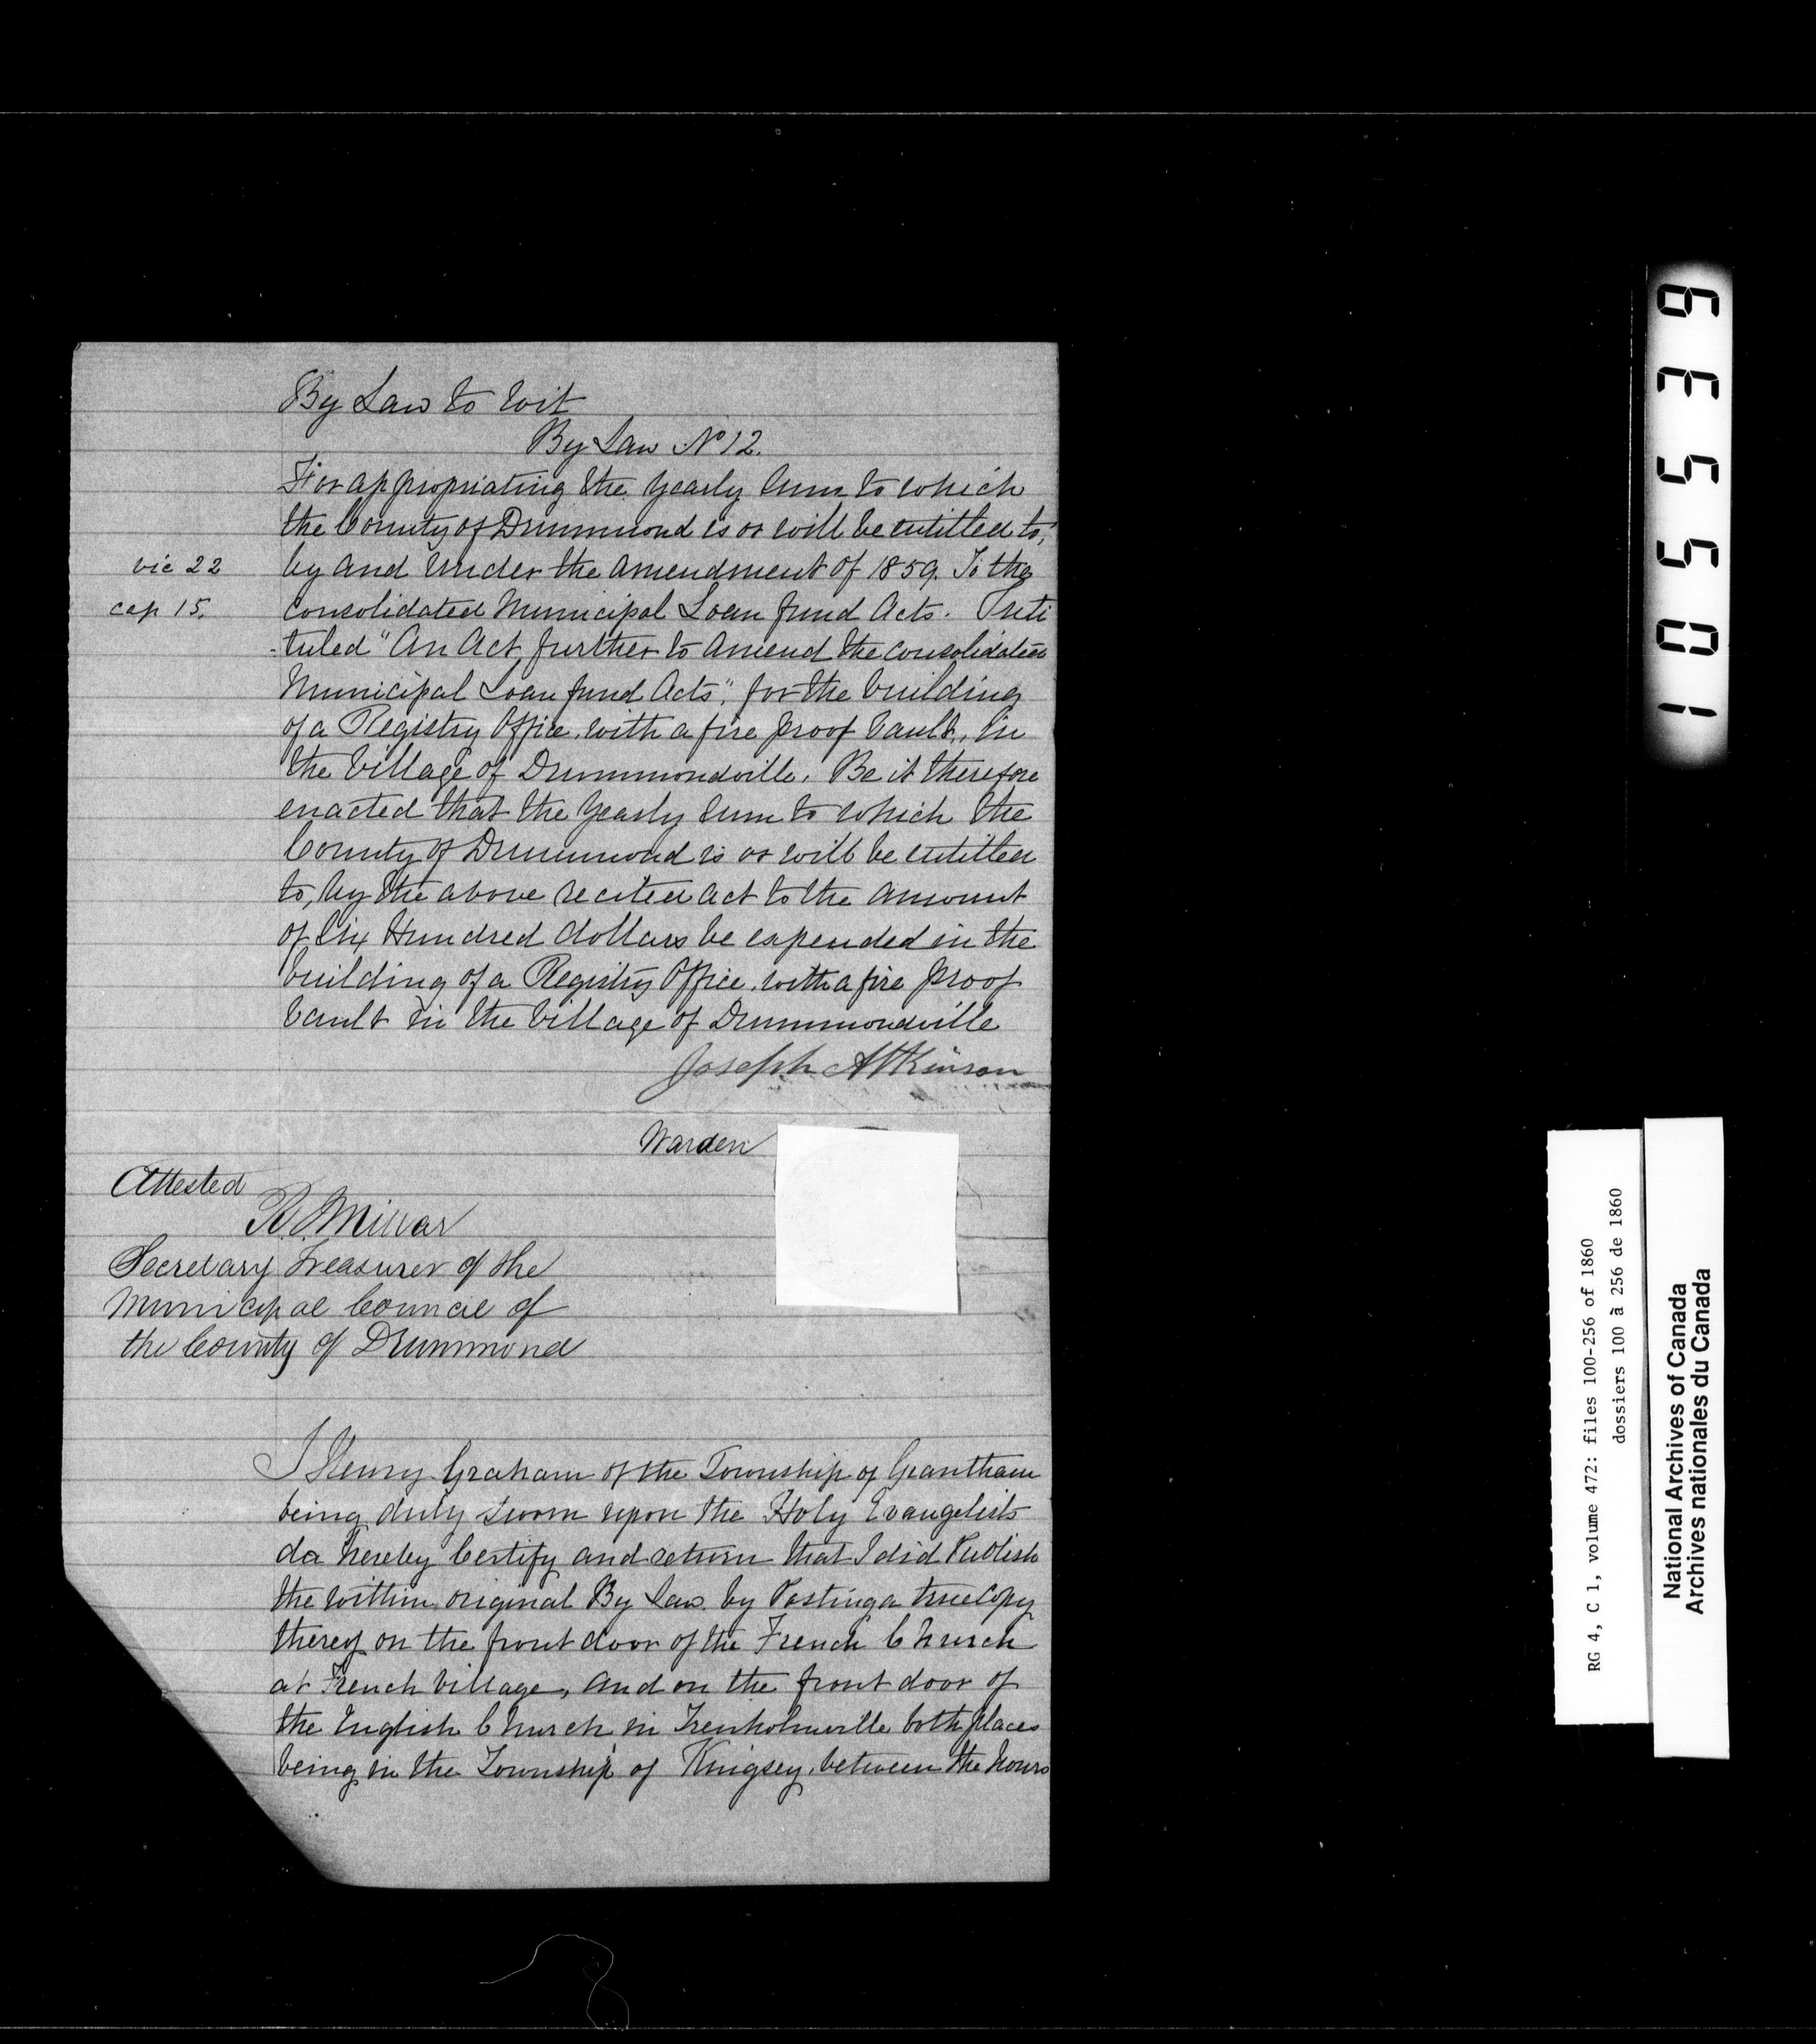 By Law to Wit
By Law No 12.
For appropriating the Yearly Sum to which
the County of Drummond is or will be entitled to,
vic 22 by and under the amendment of 1859. To the
cap 15. Consolidated Municipal Loan fund Acts. Inti
-tuled "An Act further to Amend the Consolidated
Municipal Loan fund Acts", for the building
of a Registry Office, with a fire proof Vault, in
the Village of Drummondville. Be it therefore
enacted that the Yearly Sum to which the
County of Drummond is or will be entitled
to, by the above recited Act to the Amount
of Six Hundred dollars be expended in the
building of a Registry Office, with a fire proof
Vault in the Village of Drummondville
Joseph Atkinson
Warden
Attested
R. Millar
Secretary Treasurer of the
Municipal Council of
the County of Drummond
I Henry Graham of the Township of Grantham
being duly sworn upon the Holy Evangelists
do hereby Certify and return that I did Publish
the within original By Law by Posting a true Copy
thereof on the front door of the French Church
at French Village, and on the front door of
the English Church in Trenholmville both places
being in the Township of Kingsey, between the hours
105539
RG 4, C 1, volume 472: files 100-256 of 1860
dossiers 100 à 256 de 1860
National Archives of Canada
Archives nationales du Canada